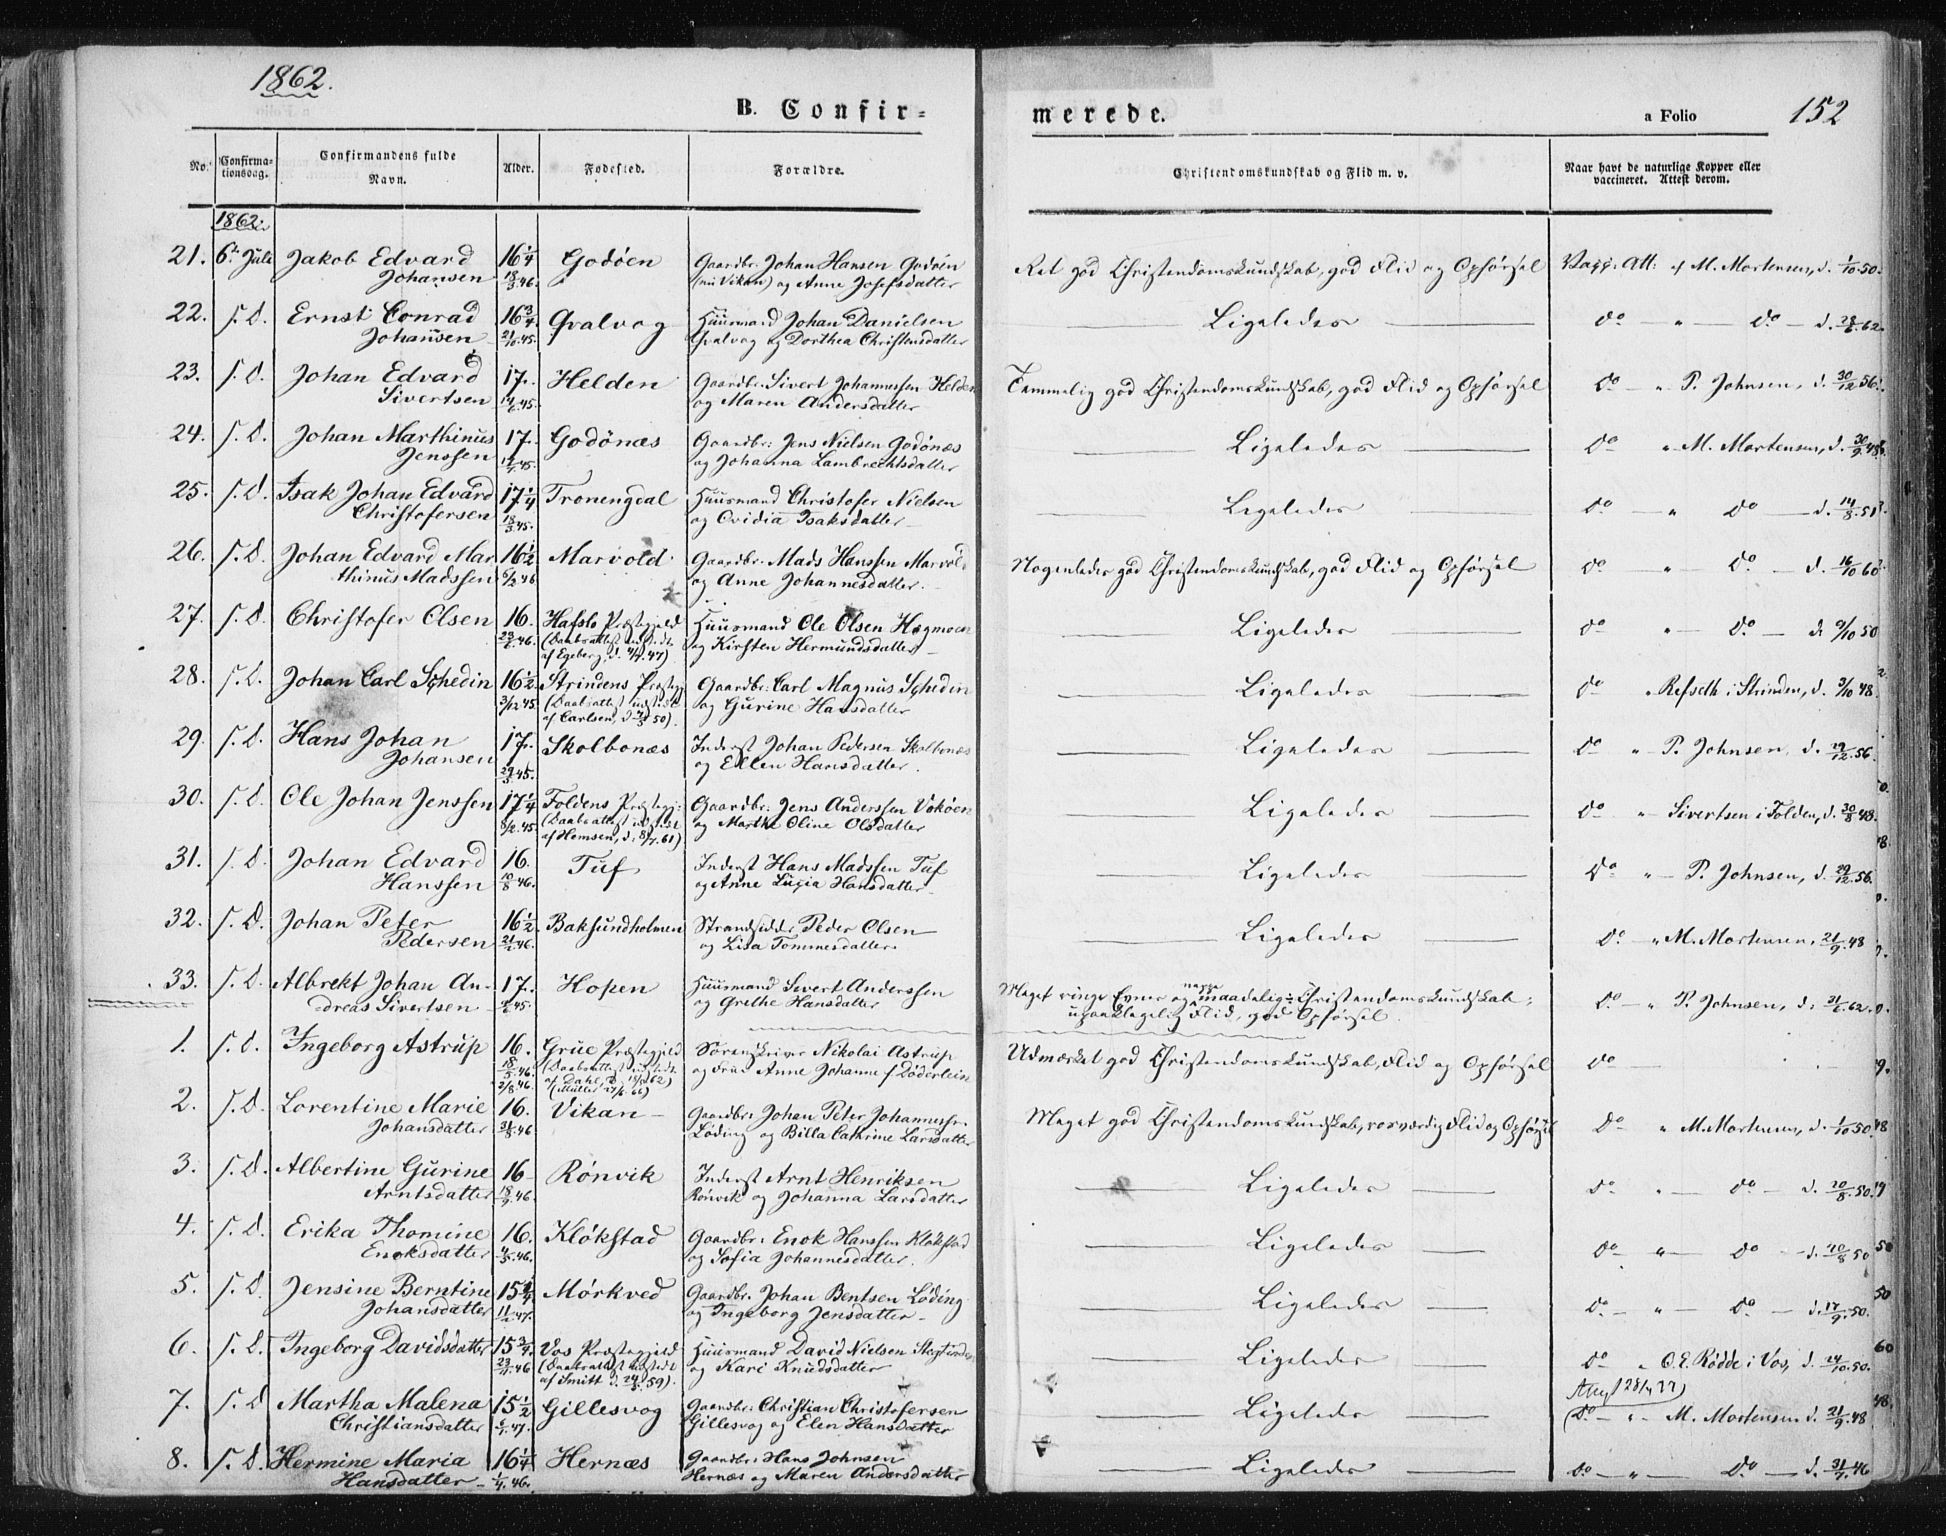 1862.
B. Confir-
merede.
a Folio 152
No.
Confirma-
tionsdag.
Confirmandens fulde
Navn.
Alder.
Fødested.
Forældre.
Christendomskundskab og Flid m. v.
Naar havt de naturlige Kopper eller
vaccineret. Attest derom.
1862.
21. 6. Juli Jakob Edvard 16 1/4 Godöen Gaardbr: Johan Hansen Godöen Ret god Christendomskundskab, god Flid og Opførsel Vacc: Att: af M. Mortensen, d. 1/10 50.
Johansen 18/3 46. (nu Vikan) og Anne Josefsdatter
22. s. D. Ernst Conrad 16 3/4 Qvalvog Huusmand Johan Danielsen Ligeledes do " do d. 28/6 62.
Johansen 21/10 45. Qvalvog og Dorthea Christensdatter
23. s. D. Johan Edvard 17. Helden Gaardbr: Sivert Johannessen Helden Temmelig god Christendomskundskab, god Flid og Opførsel do " P. Johnsen, d. 30/12 56.
Sivertsen 14/6 45. og Maren Andersdatter
24. s. D. Johan Marthinus 17. Godönæs Gaardbr: Jens Nielsen Godönæs Ligeledes do " M. Mortensen, d. 30/9 48.
Jenssen og Johanna Lambrechtsdatter
25. s. D. Isak Johan Edvard 17 1/4 Tronengdal Huusmand Christofer Nielsen Ligeledes do " do d. 14/8 51
Christofersen 18/3 45. og Ovidia Isaksdatter
26. s. D. Johan Edvard Mar 16 1/2 Marvold Gaardbr. Mads Hanssen Marvold Nogenledes god Christendomskundskab, god Flid og Opførsel do " do d. 16/10 60
thinus Madssen 5/2 46 og Anne Johannesdatter.
27. s. D. Christofer Olsen 16. Hafslo Præstegjeld Huusmand Ole Olsen Hogmoen Ligeledes do " do d. 9/10 50
23/6 46. (Daabsattest udstedt og Kirsten Hermundsdatter
af Egeberg, d. 47)
28. s. D. Johan Carl Schedin 16 1/2 Strindens Præstegj Gaardbr: Carl Magnus Schedin Ligeledes do " Refseth i Strinden, d. 3/10 48.
3/12 45 (Daabsattest udstedt og Gurine Hansdatter
af Carlsen, d. 50)
29. s. D. Hans Johan 17. Skolbonæs Inderst Johan Pedersen Skolbonæs Ligeledes do " P. Johnsen, d. 29/12 56.
Johansen 29/5 45. og Ellen Hansdatter.
30. s. D. Ole Johan Jenssen 17 1/4 Foldens Præstegj: Gaardbr: Jens Anderssen Vokøen Ligeledes do " Sivertsen i Folden, d. 30/8 48.
8/2 45. (Daabsattest udstedt og Marthe Oline Olsdatter
af Hemsen, d. 8/7 61)
31. s. D. Johan Edvard 16. Tuf Inderst Hans Madssen Tuf Ligeledes do " P. Johnsen, d. 29/12 56.
Hanssen 10/8 46. og Anne Lucia Hansdatter
32. s. D. Johan Peter 16 1/2 Baksundholmen Strandsidder Peder Olsen Ligeledes do " M. Mortensen, 21/9 48
Pedersen 21/2 46. og Lisa Tommesdatter
33. s. D. Albrekt Johan An- 17. Hopen Huusmand Sivert Anderssen Meget ringe Evner og maadelig Christendomskundskab; do " P. Johnsen, d. 21/6 62.
dreas Sivertsen og Grethe Hansdatter upaaklagelig Flid, god Opførsel.
1. s. D. Ingeborg Astrup 16. Grue Præstegjeld Sorenskriver Nikolai Astrup Udmærket god Christendomskundskab, Flid og Opførsel do
18/5 46. (Daabsattest udstedt og Frue Anne Johanne f. Döderlein
2/8 46. af Dahl, 62)
2. s. D. Lorentine Marie 16. Vikan Gaardbr: Johan Peter Johannessen Meget god Christendomskundskab, rosværdig Flid og Opførsel do " M. Mortensen, d. 1/10 50.
Johansdatter 31/8 46 Löding og Billa Cathrine Larsdatter
3. s. D. Albertine Gurine 16 Rönvik Inderst Arnt Henriksen Ligeledes do " do d. 20/8 50.
Arntsdatter 46. Rönvik og Johanna Larsdatter
4. s. D. Erika Thomine 16. Klökstad Gaardbr: Enok Hanssen Klökstad Ligeledes do " do d. 20/8 50
Enoksdatter 46. og Sofia Johannesdatter.
5. s. D. Jensine Berntine 15 Mörkved Gaardbr. Johan Bentsen Löding Ligeledes do " do d. 17/9 50.
Johansdatter 47. og Ingeborg Jensdatter
6. s. D. Ingeborg Davidsdatter 15 3/4 Vos Præstegjeld Huusmand David Nielsen Ligeledes do " O. E. Rödde i Vos, d. 24/10 50.
46 (Daabsattest udstedt og Kari Knudsdatter
af Smitt d. 59).
7. s. D Martha Malena 15 1/2 Gillesvog Gaardbr: Christian Christofersen Ligeledes do " M. Mortensen d. 21/9 48
Christiansdatter 47. Gillesvog og Elen Hansdatter
8. s. D. Hermine Maria 16 1/4 Hernæs Gaardbr: Hans Johnsen Ligeledes do " do d. 31/7 46
Hansdatter 1/4 46. Hernæs og Maren Andersdatter